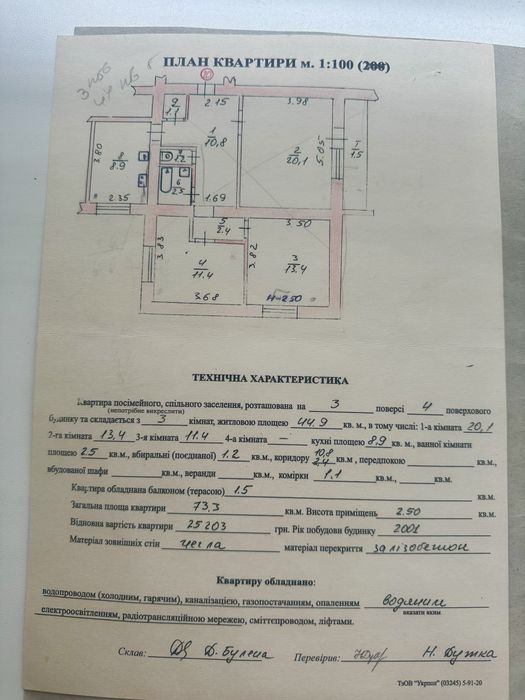 ПЛАН КВАРТИРИ м. 1:100 (200)
3 пов
44 кв 5
21
9
1.1
2.15
3.98
1
10.8
2
20,1
5.05
1
1.5
3.80
8
8.9
7
1.2
6
2.5
2.35
1.69
5
2.4
3.50
3.83
3.82
4
11.4
3
13.4
3.68
H=2.50
ТЕХНІЧНА ХАРАКТЕРИСТИКА
Квартира посімейного, спільного заселення, розташована на 3 поверсі 4 поверхового
(непотрібне викреслити)
будинку та складається з 3 кімнат, житловою площею 44,9 кв. м., в тому числі: 1-а кімната 20,1
2-га кімната 13,4 3-я кімната 11.4 4-а кімната — кухні площею 8,9 кв. м., ванної кімнати
площею 2.5 кв.м., вбиральні (поєднаної) 1.2 кв.м., коридору 10,8 2,4 кв. м., передпокою кв.м.,
вбудованої шафи кв.м., веранди кв.м., комірки 1,1 кв.м., кв.м.
Квартира обладнана балконом (терасою) 1.5 кв.м.
Загальна площа квартири 73,3 кв.м. Висота приміщень 2.50 кв.м.
Відновна вартість квартири 25203 грн. Рік побудови будинку 2001
Матеріал зовнішніх стін цегла матеріал перекриття залізобетон
Квартиру обладнано:
водопроводом (холодним, гарячим), каналізацією, газопостачанням, опаленням водяним
вказати яким
електроосвітленням, радіотрансляційною мережею, сміттєпроводом, ліфтами.
Склав: Д. Булена Перевірив: Н. Дутка
ТзОВ "Укрпол" (03245) 5-91-20